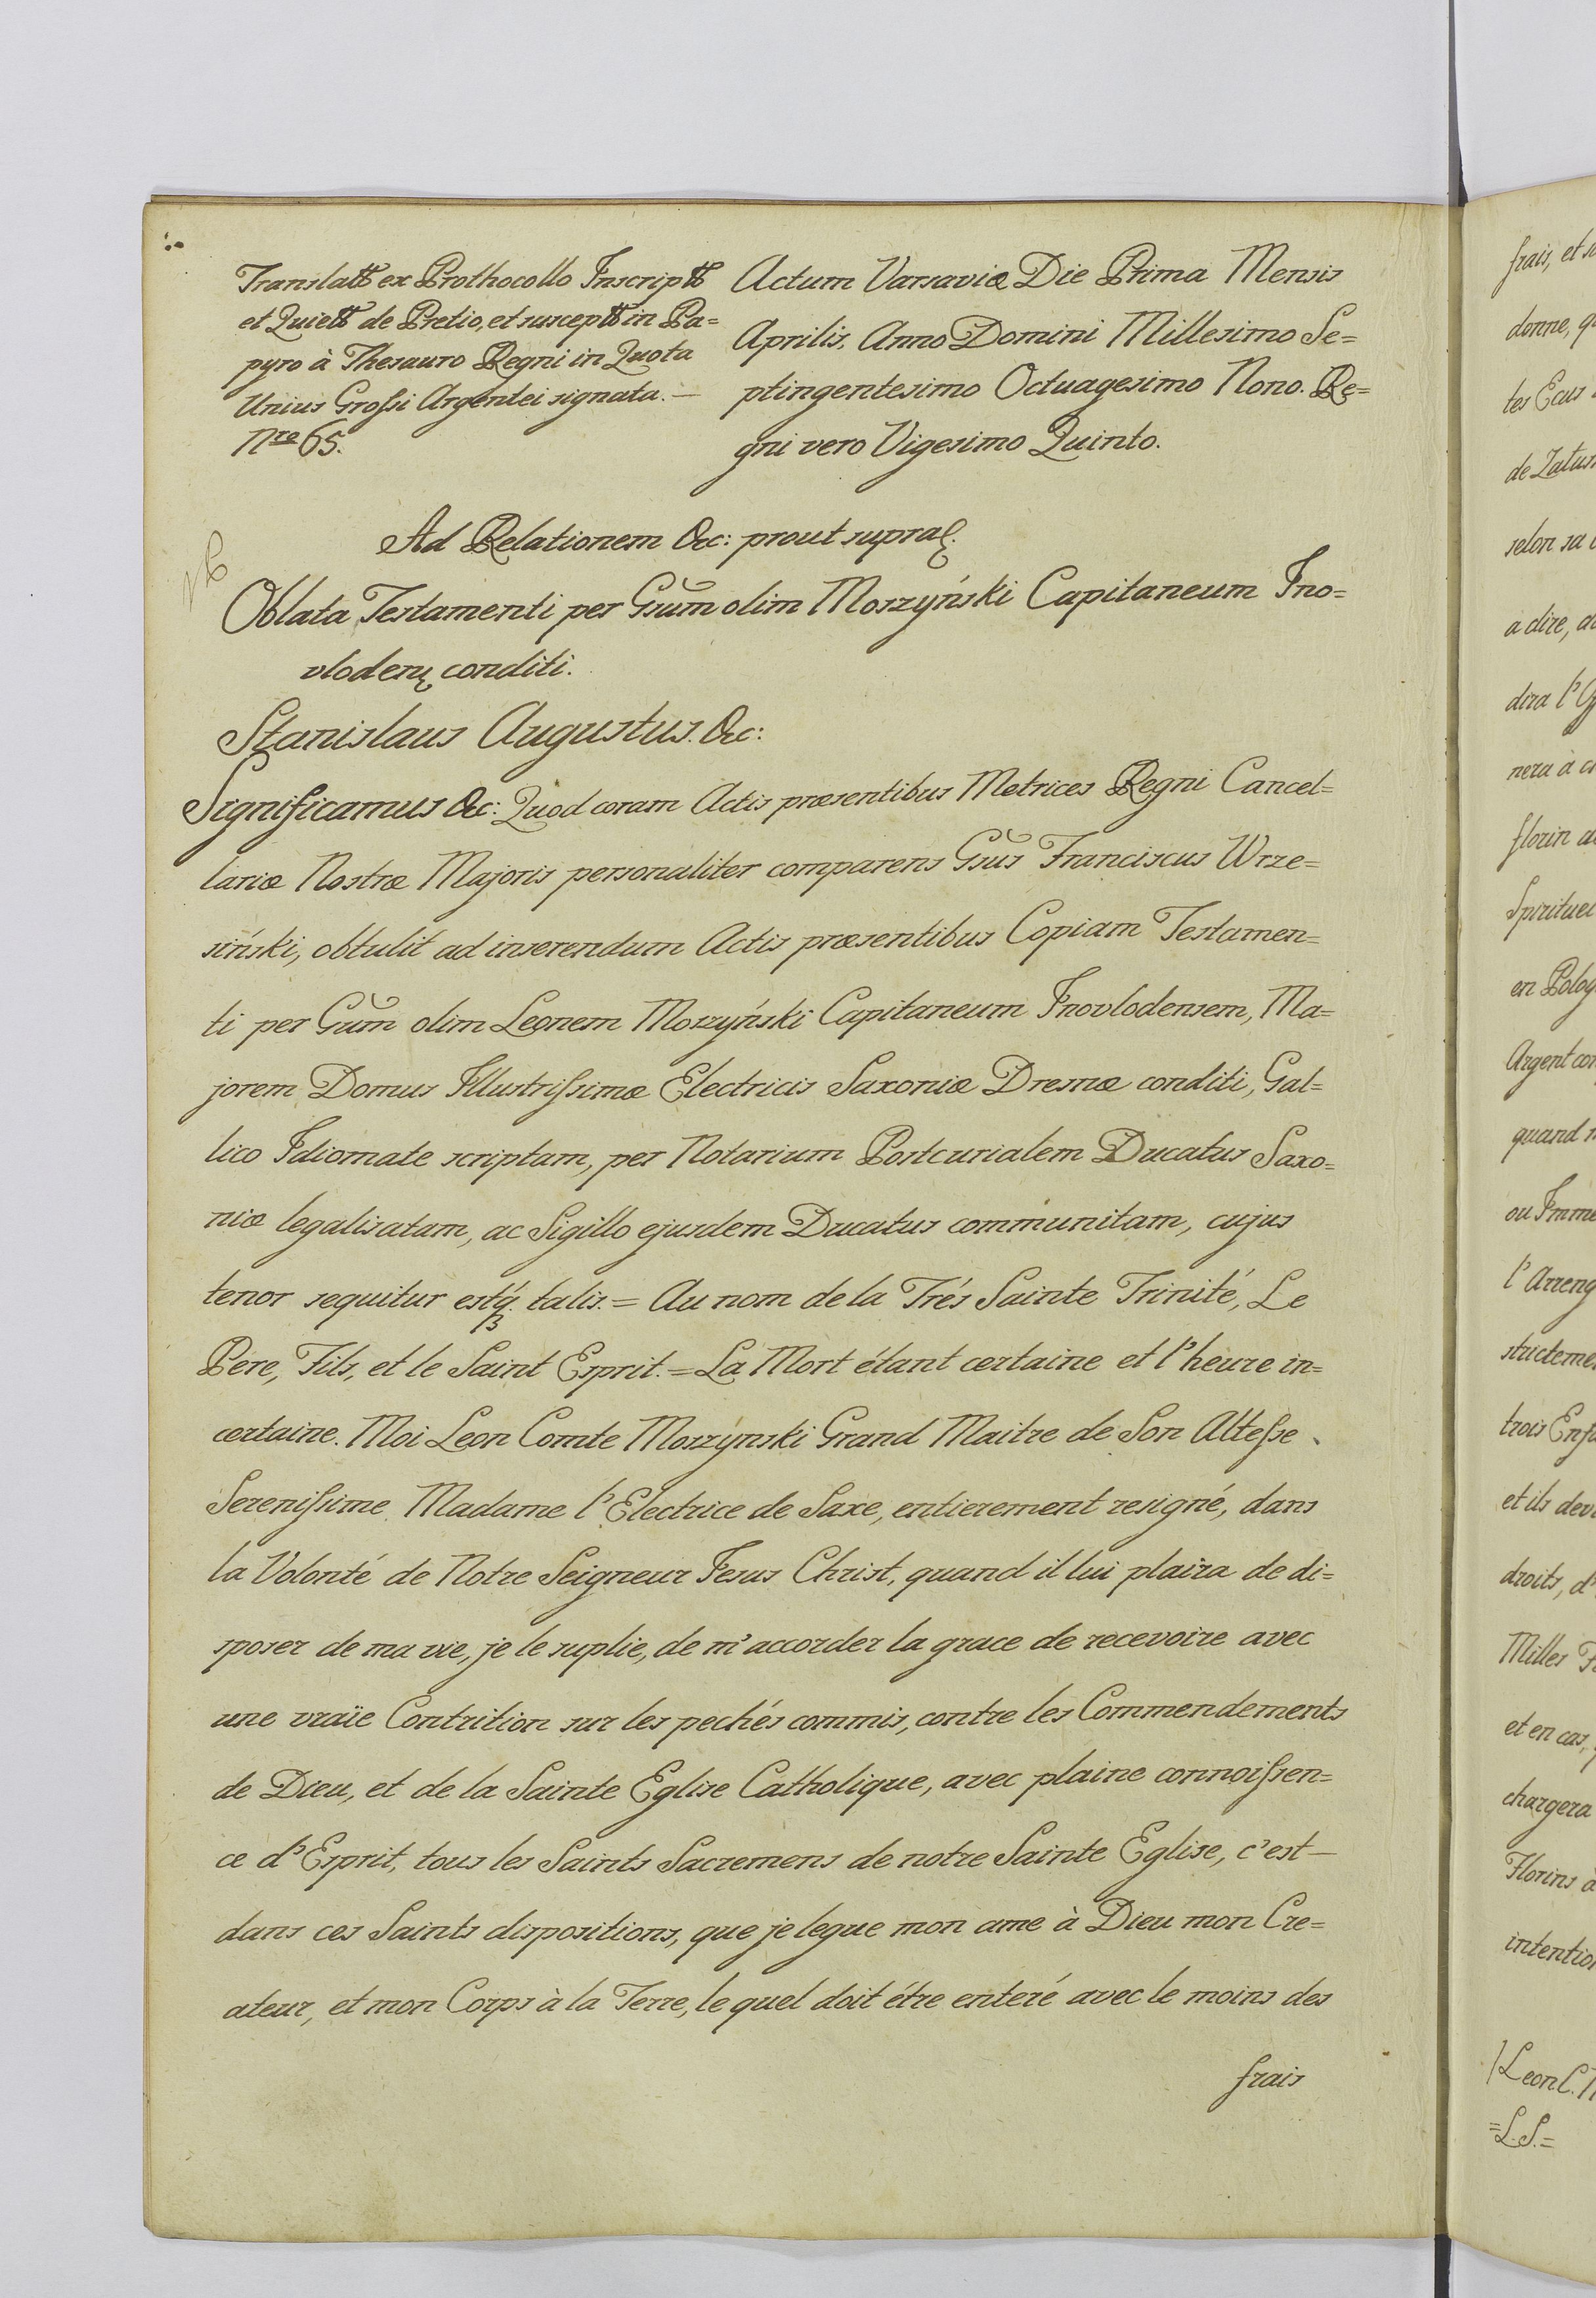 Translatt ex Prothocollo Inscriptt
et Quiett de Pretio, et susceptt in Pa=
pyro à Thesauro Regni in Quota
Unius Grossi Argentei signata. —
Nro 65.
Actum Varsaviæ Die Prima Mensis
Aprilis, Anno Domini Millesimo Se=
ptingentesimo Octuagesimo Nono. Re=
gni vero Vigesimo Quinto.
Ad Relationem &c: prout supra
Oblata Testamenti per Gsum olim Moszyński Capitaneum Ino=
vloden conditi.
Stanislaus Augustus. &c:
Significamus &c: Quod coram Actis præsentibus Metrices Regni Cancel=
lariæ Nostræ Majoris personaliter comparens Gsus Franciscus Wrze=
siński, obtulit ad inserendum Actis præsentibus Copiam Testamen=
ti per Gum olim Leonem Moszyński Capitaneum Inovlodensem, Ma=
jorem Domus Illustrissimæ Electricis Saxoniæ Dresnæ conditi, Gal=
lico Idiomate scriptam, per Notarium Postcurialem Ducatus Saxo=
niæ legalisatam, ac Sigillo ejusdem Ducatus communitam, cujus
tenor sequitur estq́ talis. = Au nom de la Trés Sainte Trinité, Le
Pere, Fils, et le Saint Esprit. = La Mort étant certaine et l'heure in=
certaine. Moi Leon Comte Moszynski Grand Maitre de Son Altesse
Serenissime Madame l'Electrice de Saxe, entierement resigné, dans
la Volonté de Notre Seigneur Jesus Christ, quand il lui plaira de di=
sposer de ma vie, je le suplie, de m'accorder la grace de recevoire avec
une vraïe Contrition sur les pechés commis, contre les Commendements
de Dieu, et de la Sainte Eglise Catholique, avec plaine connoissen=
ce d'Esprit, tous les Saints Sacremens de notre Sainte Eglise, c'est —
dans ces Saints dispositions, que je legue mon ame à Dieu mon Cre=
ateur, et mon Corps à la Terre, le quel doit étre enteré avec le moins des
frais
frais, et
donne,
tes Ecus
de
selon sa
a dire,
dira l'
nera à
florin
en
Argent
quand
ou
l'
trois
et ils
droits, d'
Milles
et en cas,
chargera
Florins
Leon C.
=L.S.=